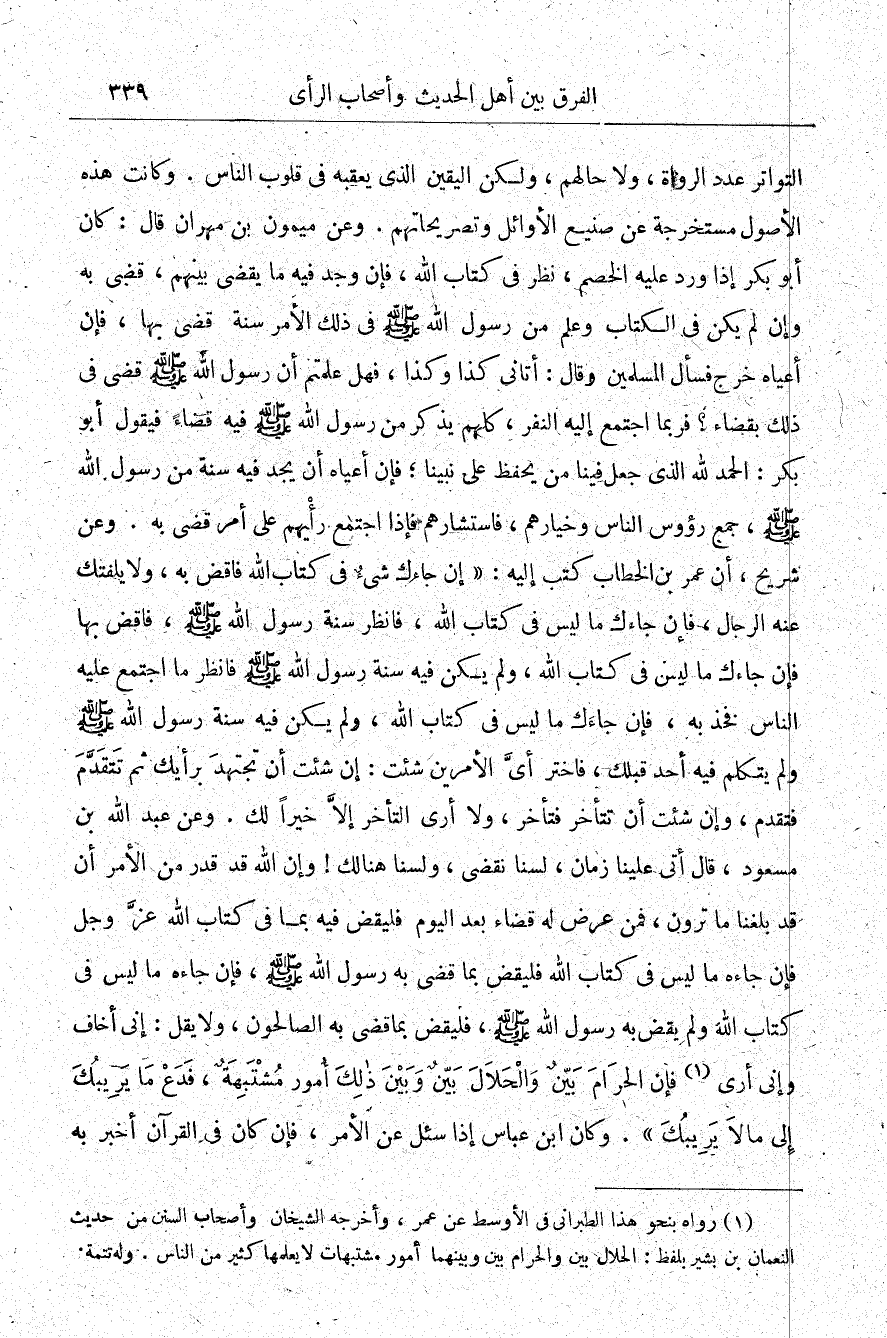 الفرق بين أهل الحديث وأصحاب الرأى ٣٣٩
التواتر عدد الرواة ، ولا حالهم ، ولكن اليقين الذى يعقبه فى قلوب الناس . وكانت هذه
الأصول مستخرجة عن صنيع الأوائل وتصريحاتهم . وعن ميمون بن مهران قال : كان
أبو بكر إذا ورد عليه الخصم ، نظر فى كتاب الله ، فإن وجد فيه ما يقضى بينهم ، قضى به
وإن لم يكن فى الكتاب وعلم من رسول الله ﷺ فى ذلك الأمر سنة قضى بها ، فإن
أعياه خرج فسأل المسلمين وقال : أتانى كذا وكذا ، فهل علمتم أن رسول الله ﷺ قضى فى
ذلك بقضاء ؟ فربما اجتمع إليه النفر ، كلهم يذكر من رسول الله ﷺ فيه قضاءً فيقول أبو
بكر : الحمد لله الذى جعل فينا من يحفظ على نبينا ؛ فإن أعياه أن يجد فيه سنة من رسول الله
ﷺ ، جمع رؤوس الناس وخيارهم ، فاستشارهم فإذا اجتمع رأْيهم على أمر قضى به . وعن
شريح ، أن عمر بن الخطاب كتب إليه : « إن جاءك شىء فى كتاب الله فاقض به ، ولا يلفتك
عنه الرجال ، فإن جاءك ما ليس فى كتاب الله ، فانظر سنة رسول الله ﷺ ، فاقض بها
فإن جاءك ما ليس فى كتاب الله ، ولم يكن فيه سنة رسول الله ﷺ فانظر ما اجتمع عليه
الناس فخذ به ، فإن جاءَك ما ليس فى كتاب الله ، ولم يكن فيه سنة رسول الله ﷺ
ولم يتكلم فيه أحد قبلك ، فاختر أىَّ الأمرين شئت : إن شئت أن تجتهدَ برأيك ثم تَتَقَدَّمَ
فتقدم ، وإن شئت أن تتأخر فتأخر ، ولا أرى التأخر إلاَّ خيراً لك . وعن عبد الله بن
مسعود ، قال أتى علينا زمان ، لسنا نقضى ، ولسنا هنالك ! وإن الله قد قدر من الأمر أن
قد بلغنا ما ترون ، فمن عرض له قضاء بعد اليوم فليقض فيه بما فى كتاب الله عزَّ وجل
فإن جاءه ما ليس فى كتاب الله فليقض بما قضى به رسول الله ﷺ ، فإن جاءه ما ليس فى
كتاب الله ولم يقض به رسول الله ﷺ ، فليقض بما قضى به الصالحون ، ولا يقل : إنى أخاف
وإنى أرى (١) فإن الحرَامَ بَيِّنٌ وَالْحَلَالَ بَيِّنٌ وَبَيْنَ ذٰلِكَ أُمور مُشْتَبِهَةٌ ، فَدَعْ مَا يَرِيبُكَ
إِلى مالاَ يَرِيبُكَ » . وكان ابن عباس إذا سئل عن الأمر ، فإن كان فى القرآن أخبر به
(١) رواه بنحو هذا الطبرانى فى الأوسط عن عمر ، وأخرجه الشيخان وأصحاب السنن من حديث
النعمان بن بشير بلفظ : الحلال بين والحرام بين وبينهما أمور مشتبهات لا يعلمها كثير من الناس . وله تتمة .